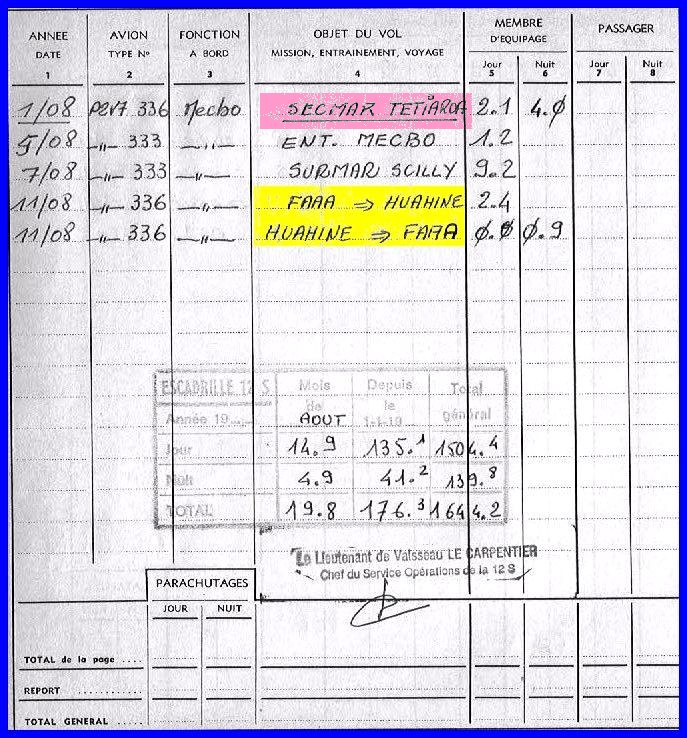 ANNEE AVION FONCTION OBJET DU VOL MEMBRE D'EQUIPAGE PASSAGER
DATE TYPE N° A BORD MISSION, ENTRAINEMENT, VOYAGE Jour Nuit Jour Nuit
1 2 3 4 5 6 7 8
1/08 P2V7 336 Mecbo SECMAR TETIAROA 2.1 4.0
5/08 -"- 333 -"- ENT. MECBO 1.2
7/08 -"- 333 -"- SURMAR SCILLY 9.2
11/08 -"- 336 -"- FAAA ⇒ HUAHINE 2.4
11/08 -"- 336 -"- HUAHINE ⇒ FAAA 0.9
ESCADRILLE 12 S Mois de Depuis le Total général
Année 19 AOUT 1-1-19
Jour 14.9 135.1 1504.4
Nuit 4.9 41.2 139.8
TOTAL 19.8 176.3 1644.2
Le Lieutenant de Vaisseau LE CARPENTIER
Chef du Service Opérations de la 12 S
PARACHUTAGES
JOUR NUIT
TOTAL de la page ....
REPORT
TOTAL GENERAL